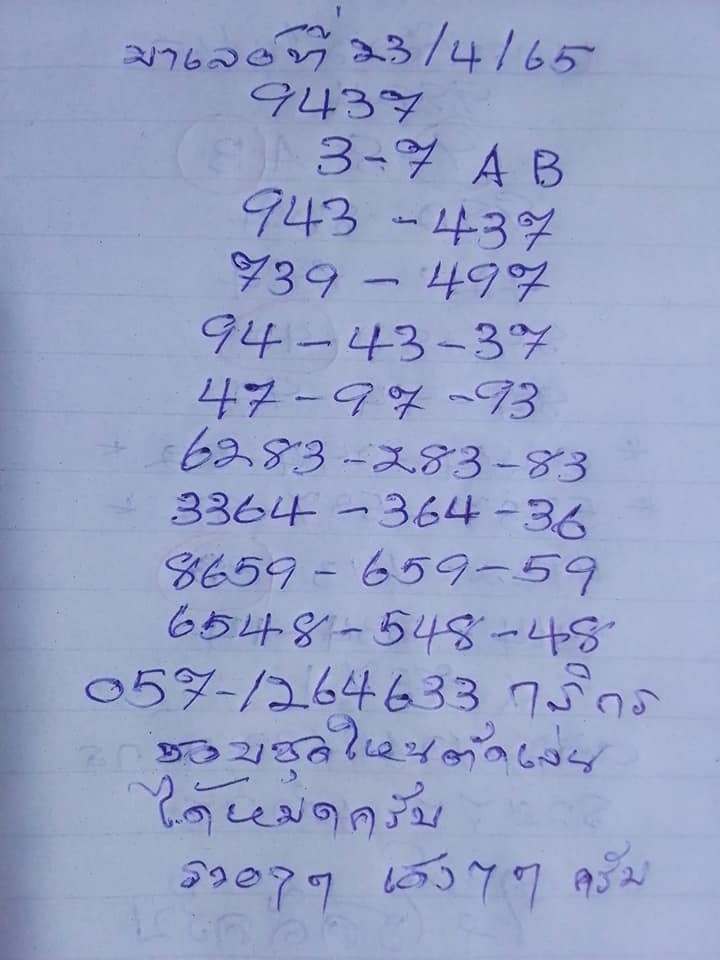 มาเลย์ที่ 23/4/65
9437
3-7 A B
943 - 437
739 - 497
94 - 43 - 37
47 - 97 - 93
6283 - 283 - 83
3364 - 364 - 36
8659 - 659 - 59
6548 - 548 - 48
057-1264633
ชอบชุดไหนตัดเล่น
ได้หมดครับ
รวยๆๆ เฮงๆๆ ครับ